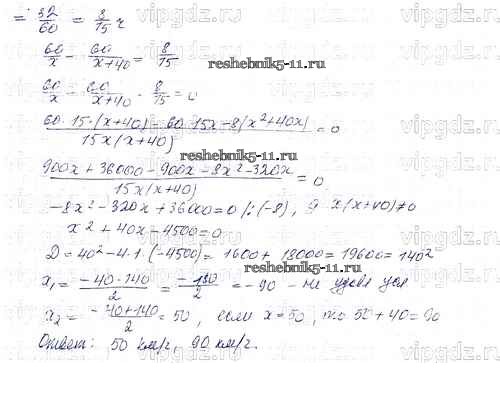 = 32/60 = 8/15 ч
60/x - 60/(x+40) = 8/15
reshebnik5-11.ru
60/x - 60/(x+40) - 8/15 = 0
(60·15·(x+40) - 60·15x - 8(x²+40x))/(15x(x+40)) = 0
(900x + 36000 - 900x - 8x² - 320x)/(15x(x+40)) = 0
reshebnik5-11.ru
-8x² - 320x + 36000 = 0 |:(-8), x(x+40)≠0
x² + 40x - 4500 = 0
D = 40² - 4·1·(-4500) = 1600 + 18000 = 19600 = 140²
reshebnik5-11.ru
x₁ = (-40-140)/2 = -180/2 = -90 - не удов. усл
x₂ = (-40+140)/2 = 50, если x = 50, то 50 + 40 = 90
Ответ: 50 км/ч, 90 км/ч.
vipgdz.ru vipgdz.ru vipgdz.ru vipgdz.ru